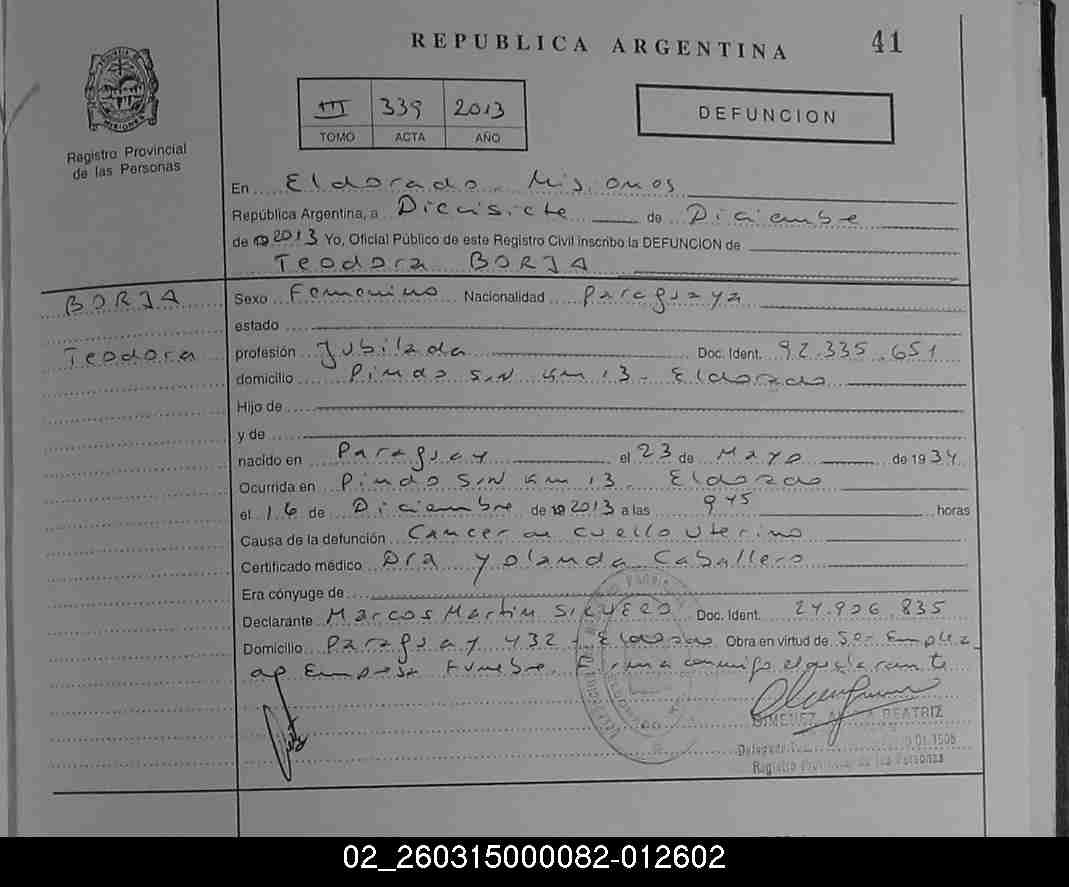 REPUBLICA ARGENTINA 41
III 339 2013
TOMO ACTA AÑO
DEFUNCION
Registro Provincial
de las Personas
En Eldorado. Misiones
República Argentina, a Diecisiete de Diciembre
de 2013 Yo, Oficial Público de este Registro Civil inscribo la DEFUNCION de
Teodora BORJA
BORJA
Teodora
Sexo Femenino Nacionalidad Paraguaya
estado
profesión Jubilada Doc. Ident. 92.335.651
domicilio Pindo S/N Km 13 - Eldorado
Hijo de
y de
nacido en Paraguay el 23 de Mayo de 1934
Ocurrida en Pindo S/N Km 13 - Eldorado
el 16 de Diciembre de 2013 a las 9 45 horas
Causa de la defunción Cancer de cuello uterino
Certificado médico Dra Yolanda Caballero
Era cónyuge de
Declarante Marcos Martin Doc. Ident. 24.906.835
Domicilio Paraguay 432 - Eldorado Obra en virtud de Ser Emplea
Empresa Funebre. Firma conmigo el
GIMENEZ BEATRIZ
Registro Provincial de las Personas
02_260315000082-012602